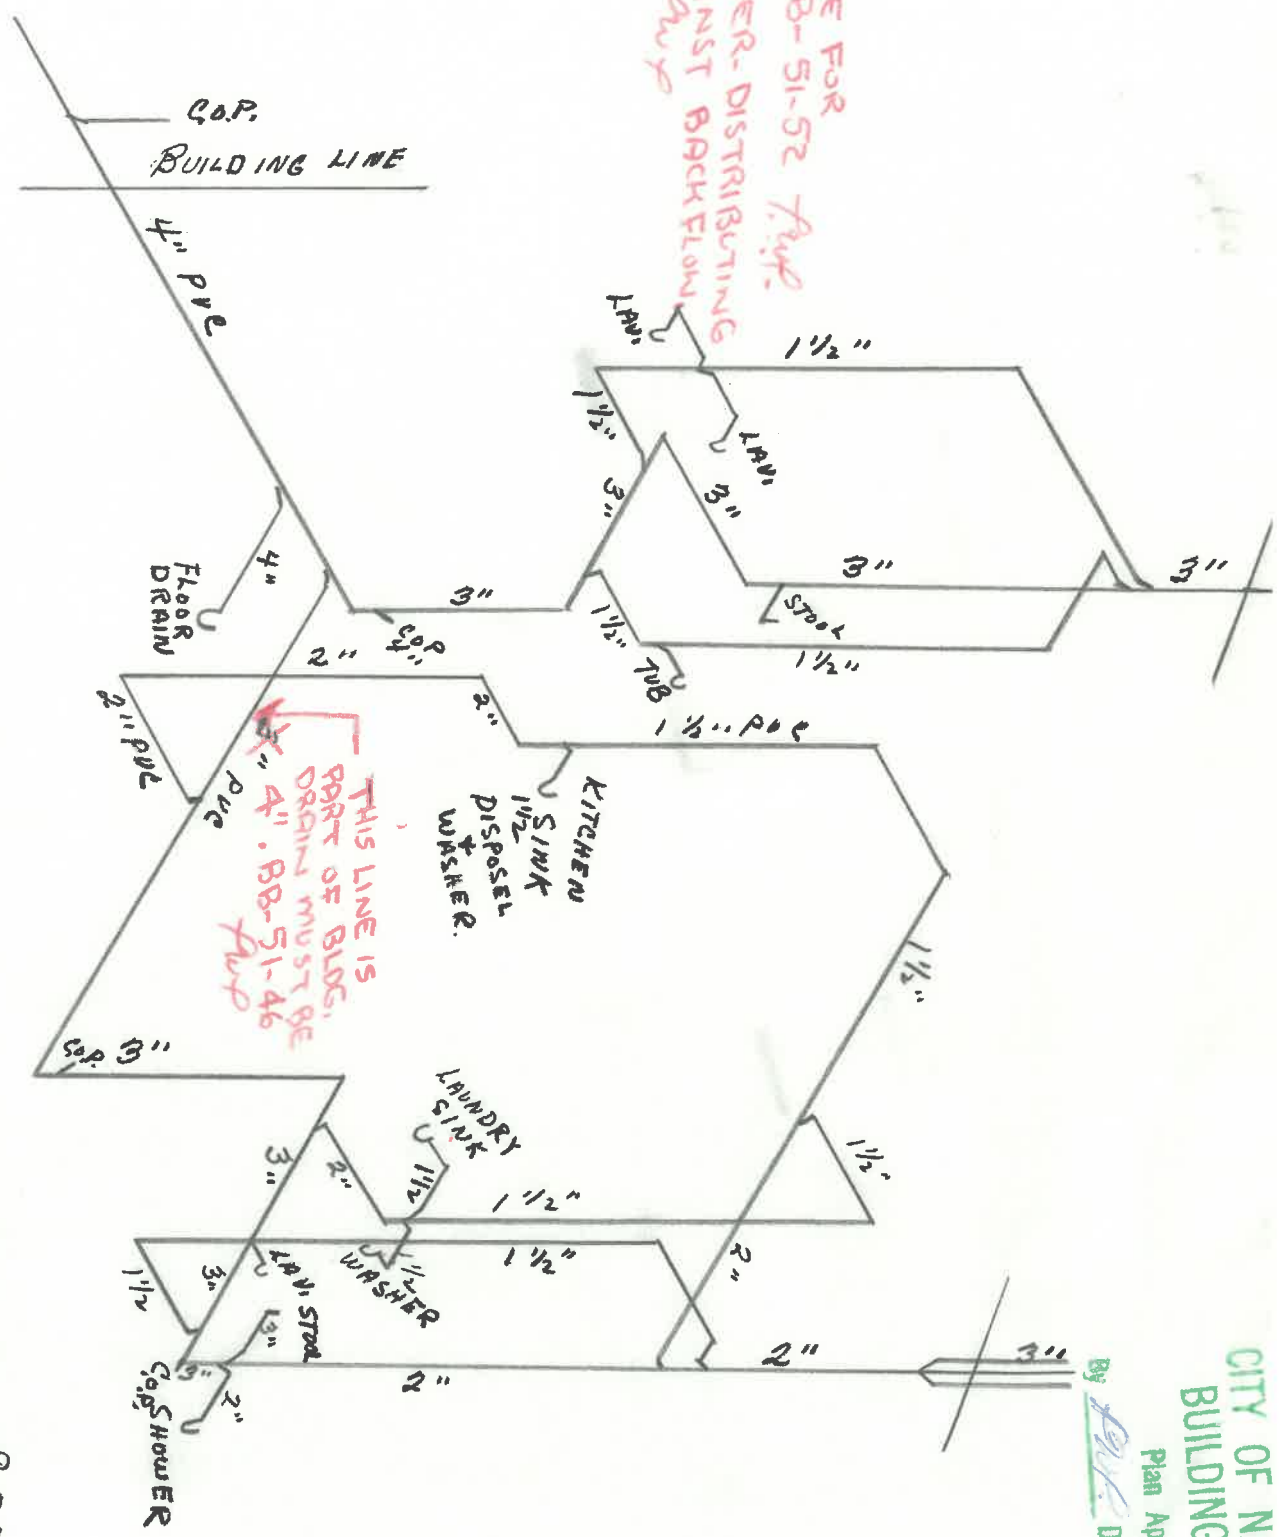 E FOR
B-51-52
ER-DISTRIBUTING
NST BACKFLOW
C.O.P.
BUILDING LINE
4" PVC
LAV.
LAV.
1 1/2"
1 1/2"
3"
3"
3"
3"
STOOL
1 1/2"
1 1/2"
TUB
3"
C.O.P.
4"
4"
FLOOR
DRAIN
2"
2"
2" PVC
PVC
1 1/2" PVC
KITCHEN
SINK
1 1/2
DISPOSEL
+
WASHER.
THIS LINE IS
PART OF BLDG.
DRAIN MUST BE
4". BB-51-46
1 1/2"
1 1/2"
C.O.P. 3"
LAUNDRY
SINK
1 1/2
3"
2"
1 1/2"
1 1/2
WASHER
1 1/2"
2"
1 1/2
3"
LAV. STOOL
3"
3"
2"
C.O.P.
SHOWER
2"
2"
3"
CITY OF N
BUILDING
Plan Ap
By
D